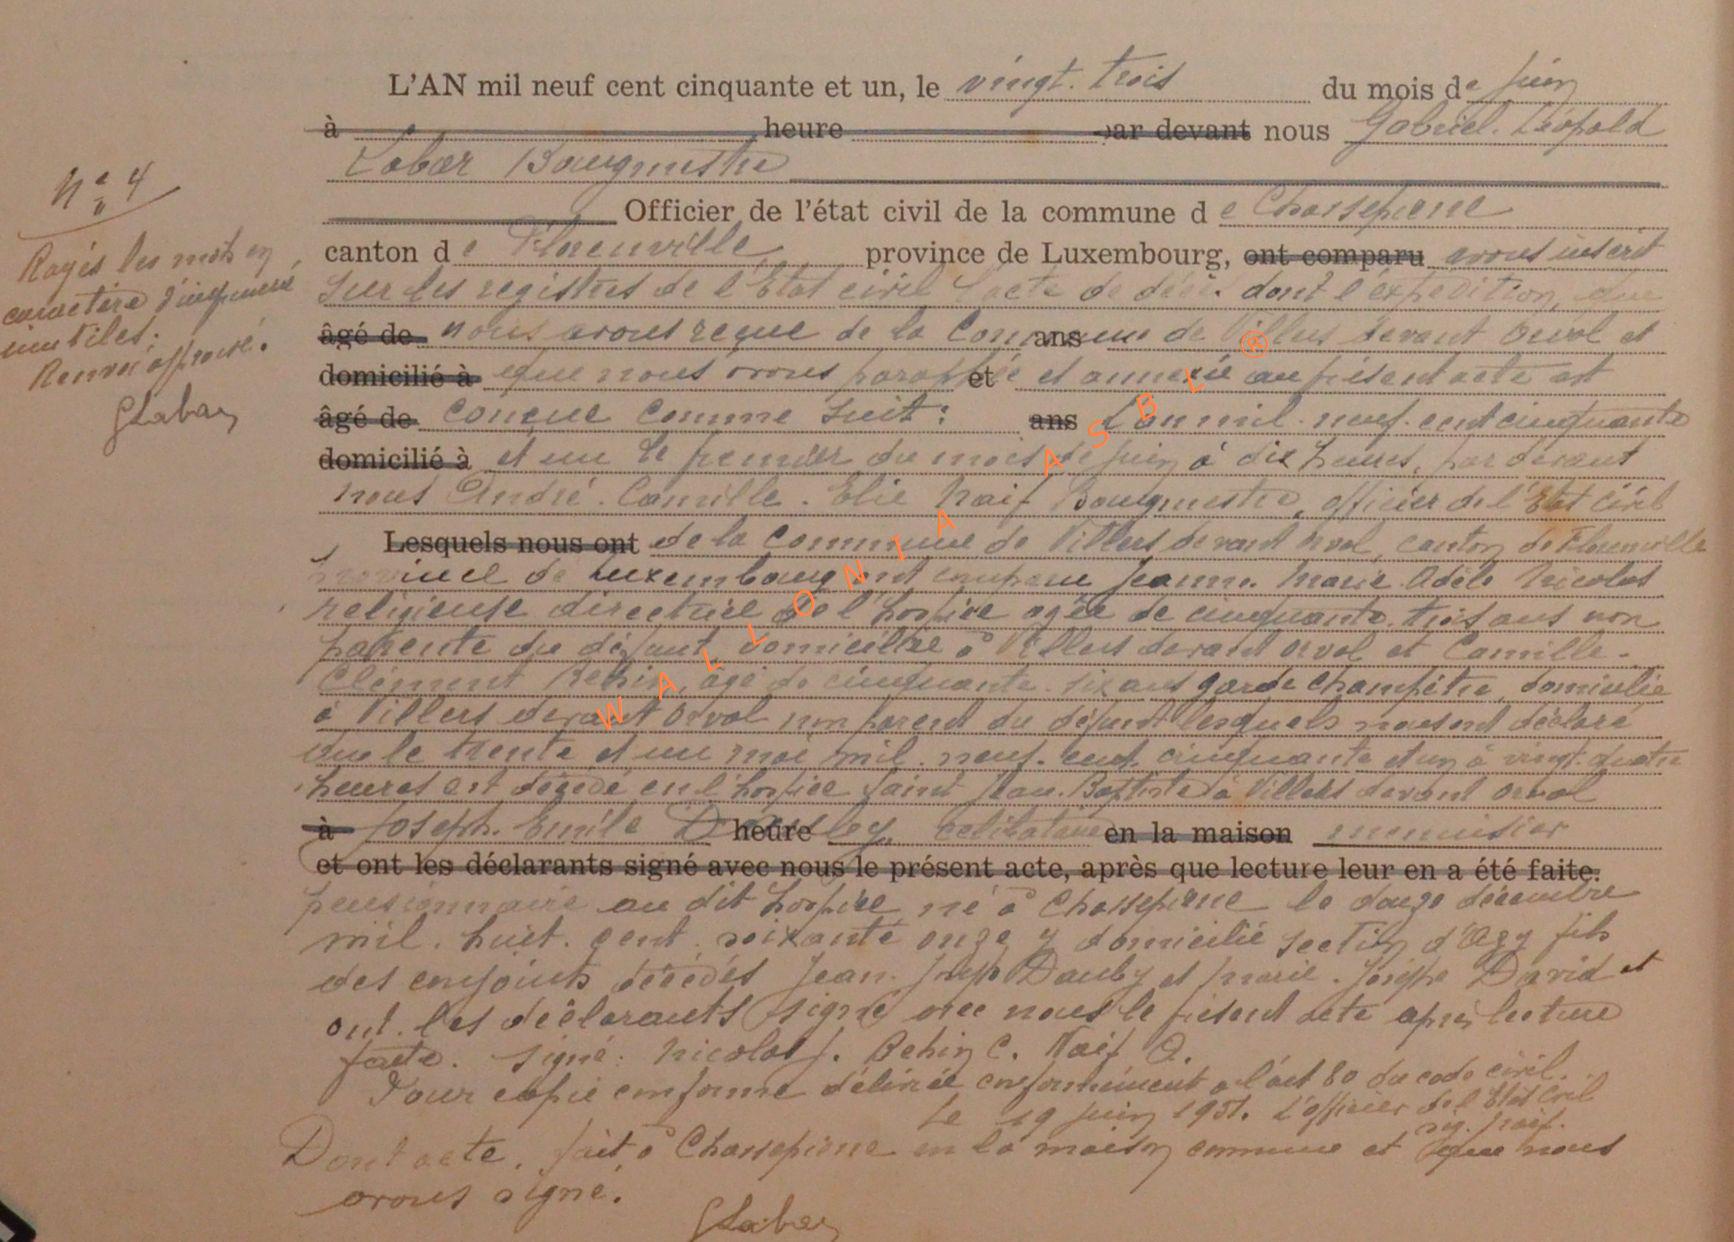 L'AN mil neuf cent cinquante et un, le vingt. trois du mois de juin
à heure par devant nous Gabriel. Léopold
Labar Bourgmestre
Officier de l'état civil de la commune de Chassepierre
canton de Florenville province de Luxembourg, ont comparu avons inscrit
sur les registres de l'Etat civil l'acte de décès dont l'expédition, que
âgé de nous avons reçue de la Commune ans de Villers devant Orval et
domicilié à que nous avons paraphée et et annexée au présent acte est
âgé de conçue comme suit : ans L'an mil. neuf. cent cinquante
domicilié à et un le premier du mois de juin à dix heures, par devant
nous André. Camille. Elie Naif Bourgmestre, officier de l'Etat civil
Lesquels nous ont de la Commune de Villers devant Orval, canton de Florenville
province de Luxembourg ont comparu Jeanne. Marie. Adèle Nicolas
religieuse directrice de l'hospice agée de cinquante. trois ans non
parente du défunt, domiciliée à Villers devant Orval et Camille.
Clément Rehin, agé de cinquante. six ans garde champêtre, domicilié
à Villers devant Orval non parent du défunt lesquels nous ont déclaré
que le trente et un mai mil. neuf. cent. cinquante et un à vingt. quatre
heures est décédé en l'hospice Saint Jean. Baptiste à Villers devant Orval
à Joseph. Emile heure célibataire en la maison menuisier
et ont les déclarants signé avec nous le présent acte, après que lecture leur en a été faite.
pensionnaire au dit hospice né à Chassepierre le douze décembre
mil. huit. cent. soixante onze y domicilié section d'Azy fils
des conjoints décédés Jean. Joseph Dauby et Marie. Josèphe David et
ont. les déclarants signé avec nous le présent acte après lecture
faite. Signé : Nicolas J. Rehin C. Naif A.
Pour copie conforme délivrée conformément à l'art 80 du code civil.
Le 19 juin 1951. L'officier de l'Etat Civil
sig. Naif.
Dont acte, fait à Chassepierre en la maison commune et que nous
avons signé.
GLabar
N° 4
Rayés les mots en
caractère d'imprimerie
inutiles ;
Renvoi approuvé.
GLabar
WALLONIA ASBL ®